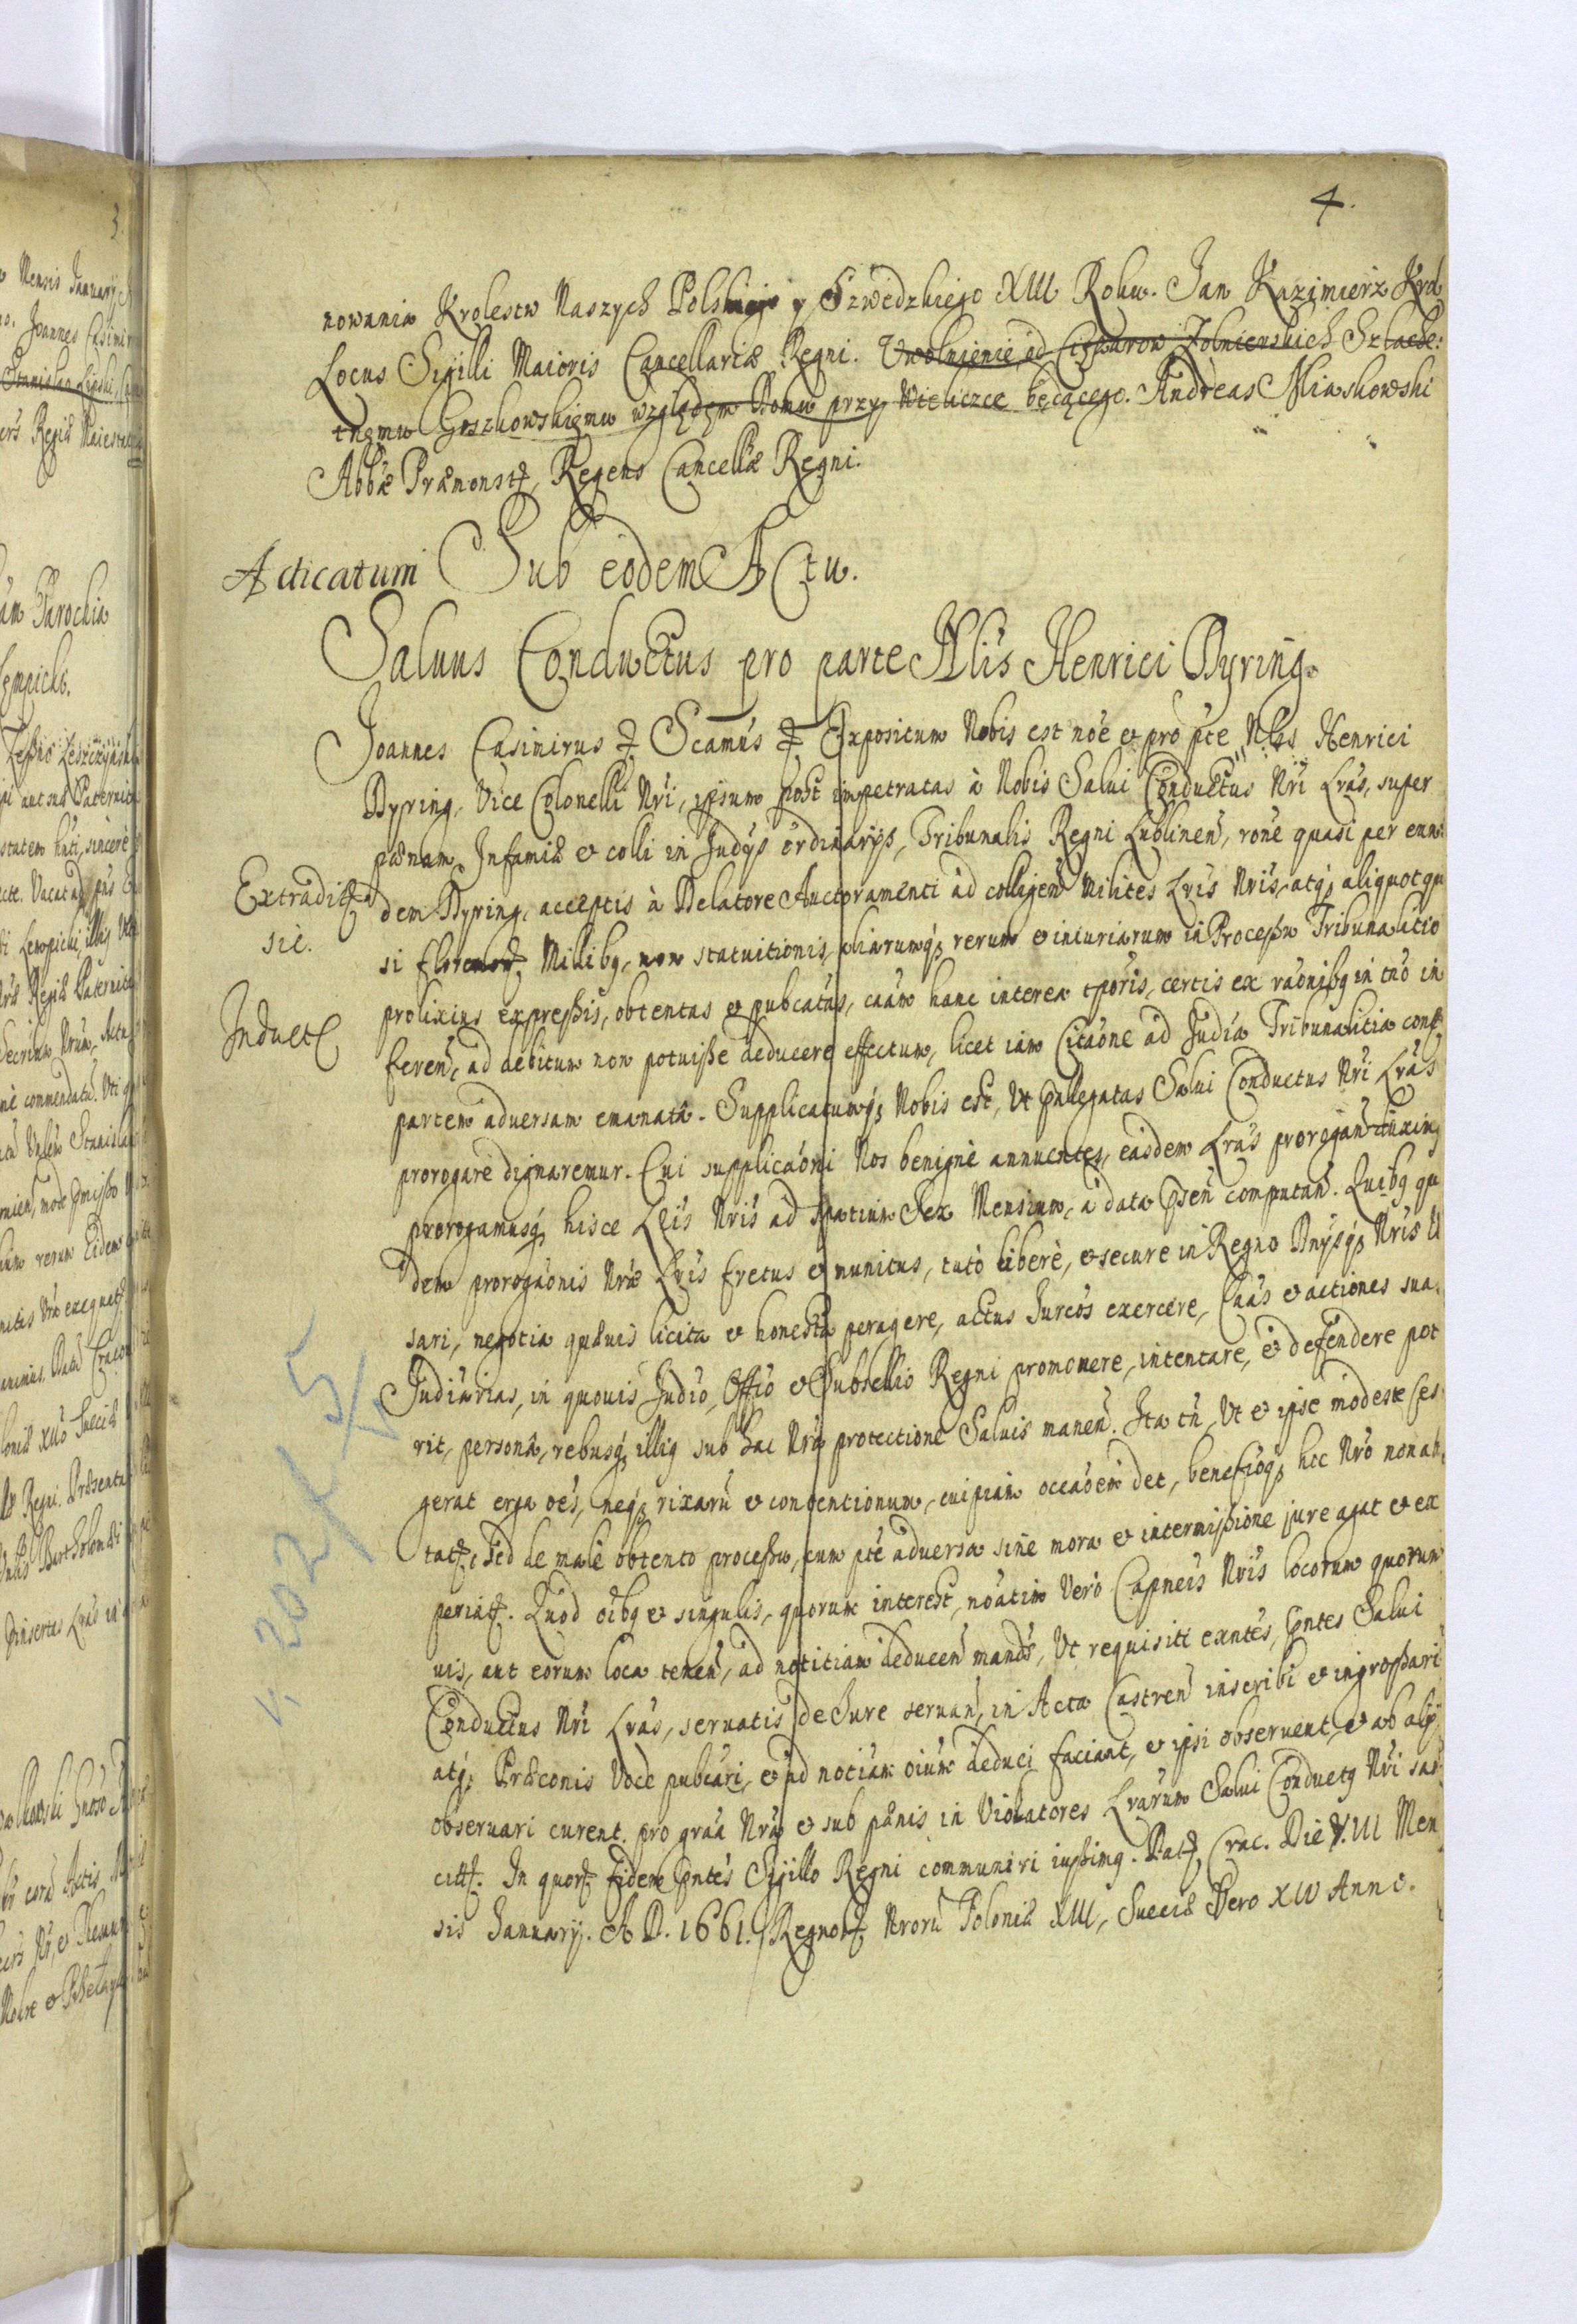 4.
nowania Krolestw Naszych Polskiego y Szwedzkiego XIII Roku. Jan Kazimierz Krol
Locus Sigilli Maioris Cancellariæ Regni. Uwolnienie od Ciężarow Zolnierskich Szlache:
tnemu Goszkowskiemu względem Domu przy Wieliczce będącego. Andreas Miaskowski
Abbæ Præmonst Regens Cancellæ Regni.
Acticatum Sub eodem Actu.
Saluus Conductus pro parte Nlis Henrici Dyring.
Joannes Casimirus Scamus Expositum Nobis est noe et pro pte Nlis Henrici
Dyring, Vice Colonelli Nri, ipsum post impetratas à Nobis Salui Conductus Nri Lras, super
pœnam Infamiæ et colli in Judys ordinarijs, Tribunalis Regni Lublinen, rone quasi per eun
Extradit
dem Dyring, acceptis à Delatore Auctoramenti ad colligen Milites Lris Nris, atq aliquot qu
sie.
si floren Millibq, non statuitionis, aliarumq rerum et iniuriarum in Processu Tribunalitio
Induct
prolixius expressis, obtentas et pubcatas, caam hanc interea tporis, certis ex raonibq in tno in
feren, ad debitum non potuisse deducere effectum, licet iam Citaone ad Judia Tribunalitia
partem aduersam emanatâ. Supplicatumq Nobis est, Ut pallegatas Salui Conductus Nri Lras
prorogare dignaremur. Cui supplicaoni Nos benignè annuentes, easdem Lras prorogan duximq
prorogamusq hisce Lris Nris ad spatium Sex Mensium, à data psen computan. Quibq qu
dem prorogaonis Nræ Lris fretus et munitus, tutò liberè, et secure in Regno Dnysq Nris U
sari, negotia quæuis licita et honesta peragere, actus Jureos exercere, Caas et actiones sua
Judiarias, in quouis Judio, Offio et Subsellio Regni promouere, intentare, et defendere pot
rit, personâ, rebusq illiq sub hac Nra protectione Saluis manen. Ita tn, Ut et ipse modeste ses
gerat erga oes, neq rixaru et contentionum, cuipiam occaoem det, beneficioq hoc Nro non ab
tat, sed de malè obtento processu, cum pte aduersa sine mora et intermissione jure agat et ex
periat. Quod oibq et singulis, quorum interest, noatim Verò Capneis Nris locorum quorum
uis, aut eorum loca tenen, ad notitiam deducen mands, Ut requisiti exntes, pntes Salui
Conductus Nri Lras, seruatis de Jure seruan, in Acta Castren inscribi et ingrossari
atq Præconis Voce pubcari, et ad notiam oium deduci faciant, et ipsi obseruent, et ab alij
obseruari curent. pro graa Nra et sub pænis in Violatores Lrarum Salui Conductq Nri san
citt. In quor fidem pntes Sigillo Regni communiri iussimq. Dat Crac. Die VIII Men
sis January. A D. 1661. Regnor Nroru Poloniæ XIII, Sueciæ Vero XIV Anno.